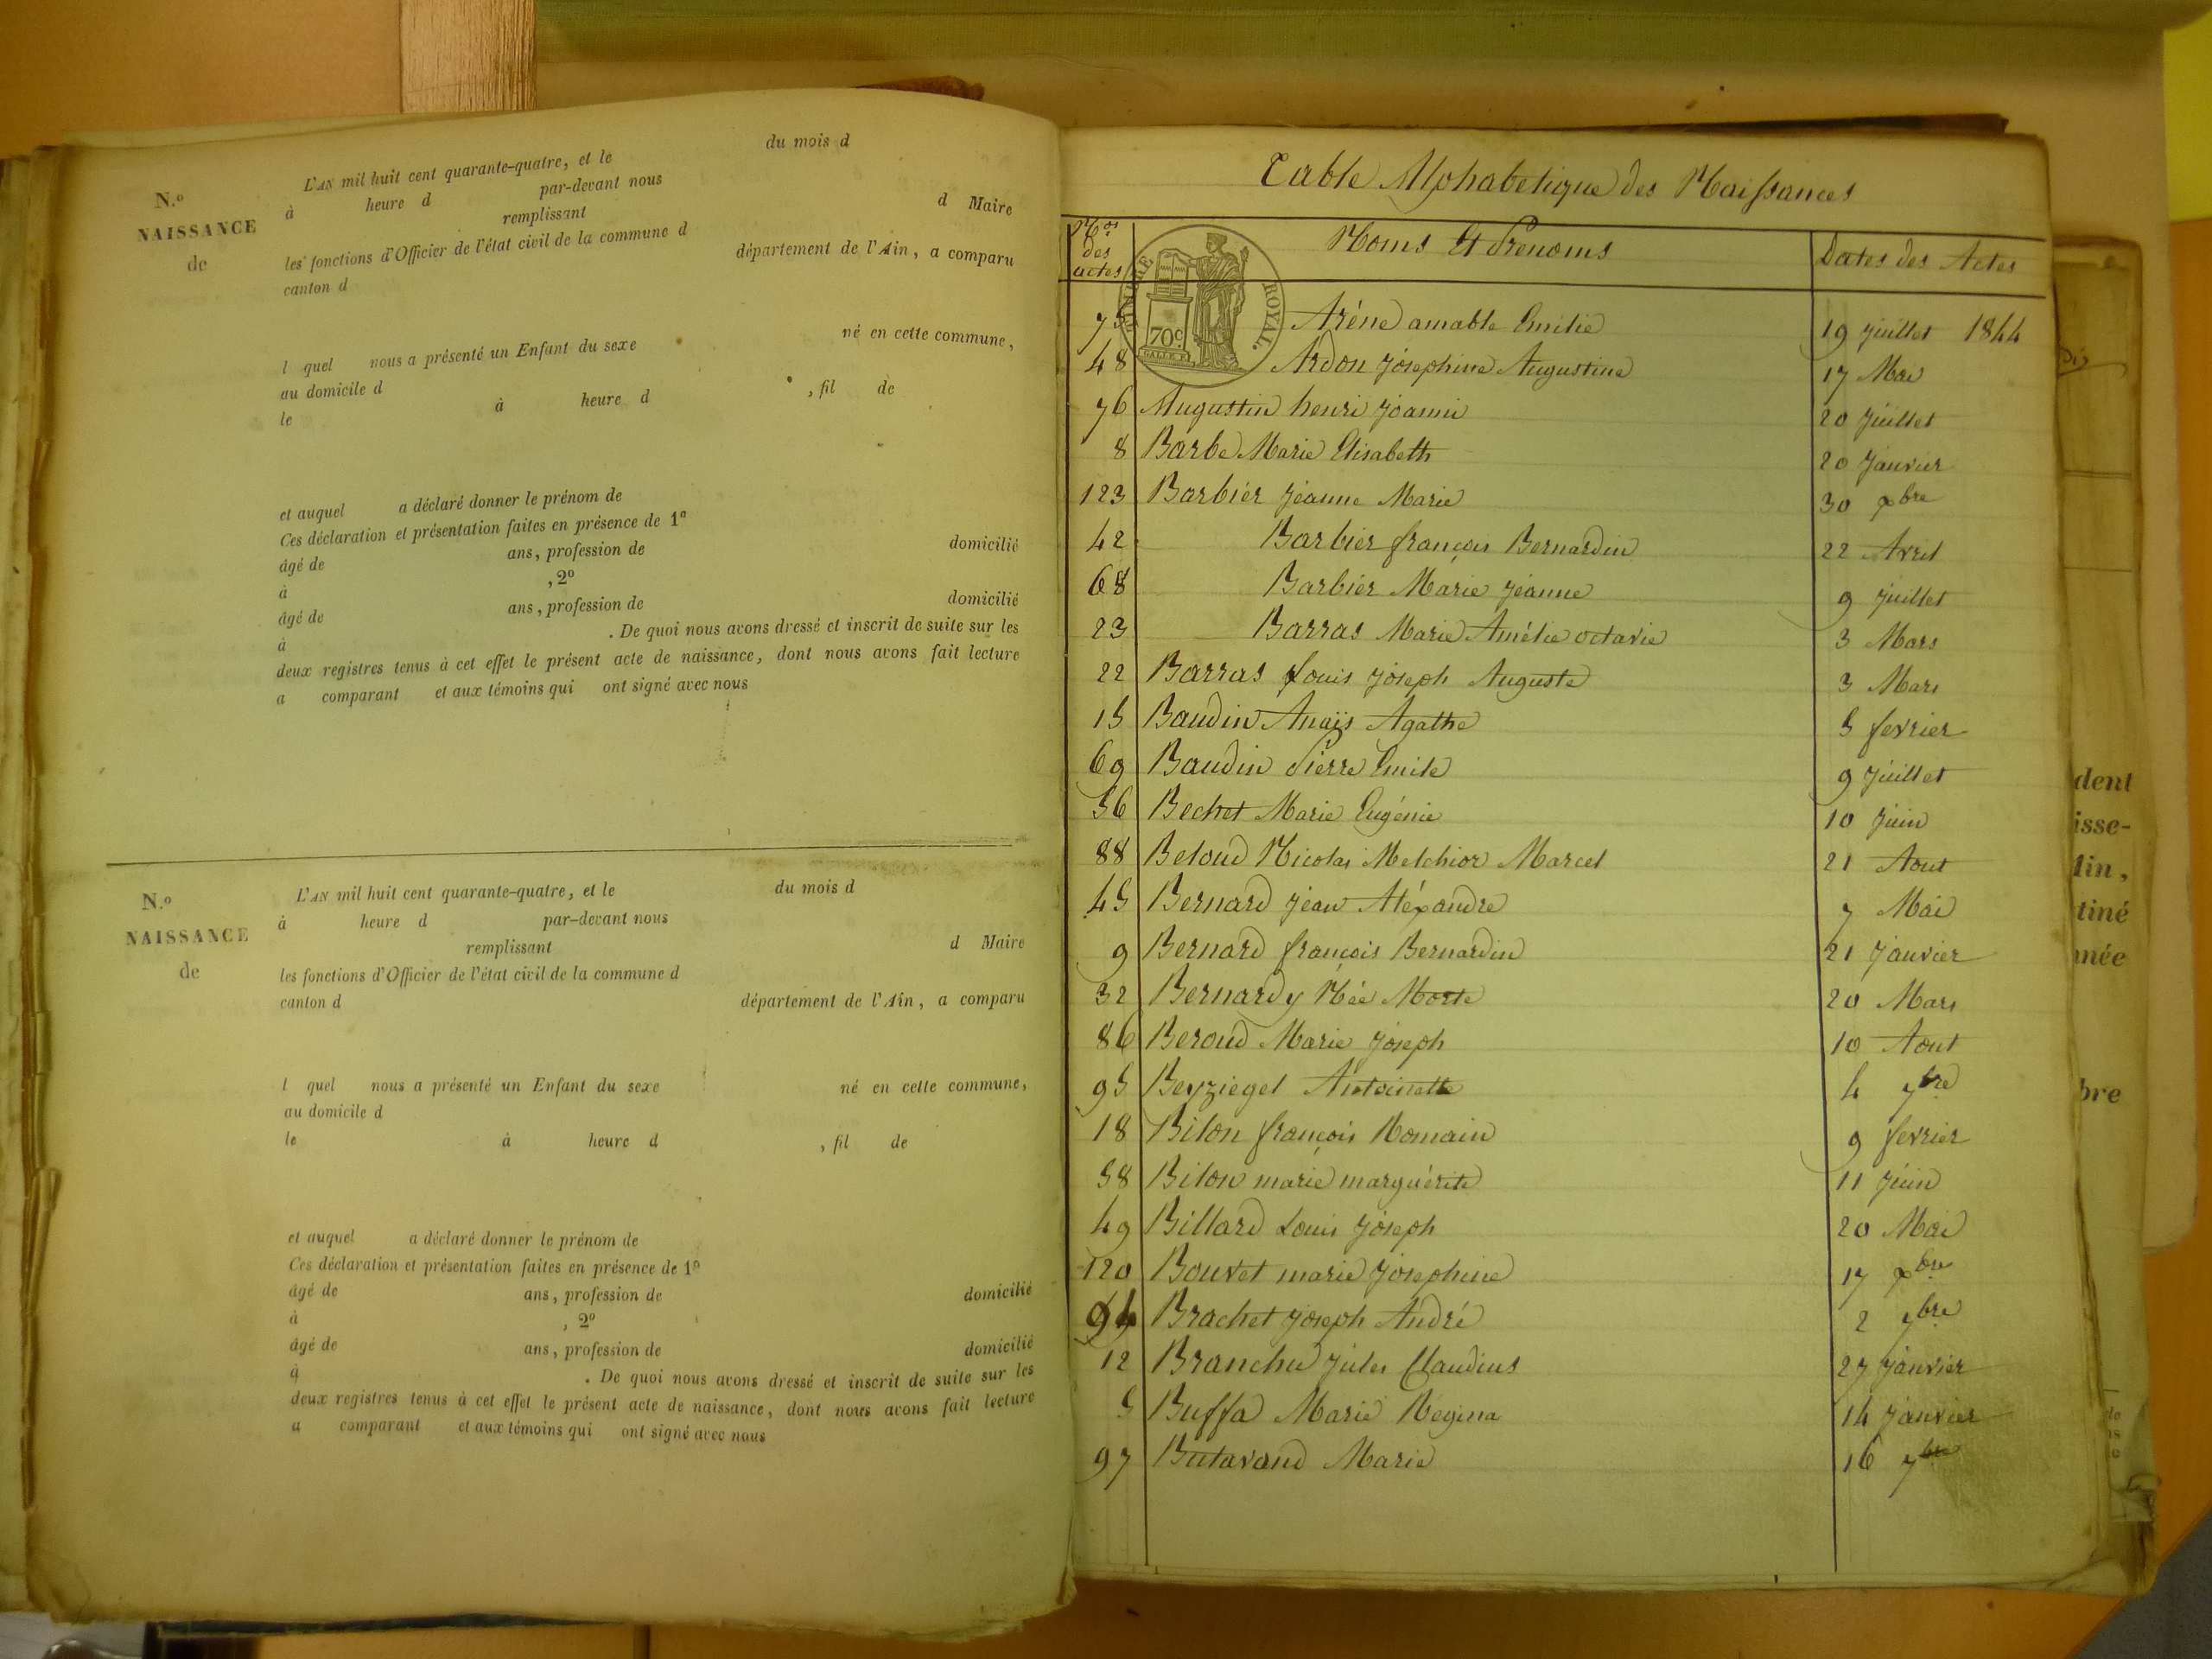 N.o
NAISSANCE
de
L'AN mil huit cent quarante-quatre, et le du mois d
à heure d par-devant nous
remplissant d Maire
les fonctions d'Officier de l'état civil de la commune d
canton d département de l'Ain, a comparu
l quel nous a présenté un Enfant du sexe né en cette commune,
au domicile d
le à heure d , fil de
et auquel a déclaré donner le prénom de
Ces déclaration et présentation faites en présence de 1º
âgé de ans, profession de domicilié
à , 2º
âgé de ans, profession de domicilié
à . De quoi nous avons dressé et inscrit de suite sur les
deux registres tenus à cet effet le présent acte de naissance, dont nous avons fait lecture
a comparant et aux témoins qui ont signé avec nous
N.o
NAISSANCE
de
L'AN mil huit cent quarante-quatre, et le du mois d
à heure d par-devant nous
remplissant d Maire
les fonctions d'Officier de l'état civil de la commune d
canton d département de l'Ain, a comparu
l quel nous a présenté un Enfant du sexe né en cette commune,
au domicile d
le à heure d , fil de
et auquel a déclaré donner le prénom de
Ces déclaration et présentation faites en présence de 1º
âgé de ans, profession de domicilié
à , 2º
âgé de ans, profession de domicilié
à . De quoi nous avons dressé et inscrit de suite sur les
deux registres tenus à cet effet le présent acte de naissance, dont nous avons fait lecture
a comparant et aux témoins qui ont signé avec nous
Table Alphabetique des Naissances
Nos des actes Noms Et Prenoms Dates des Actes
TIMBRE ROYAL.
70c.
75 Aréne amable Emilie 19 juillet 1844
48 Ardon josephine Augustine 17 Mai
76 Augustin henri joanni 20 juillet
8 Barbe Marie Elisabeth 20 janvier
123 Barbier jeanne Marie 30 xbre
42 Barbier françois Bernardin 22 Avril
68 Barbier Marie jeanne 9 juillet
23 Barras Marie Amélie octavie 3 Mars
22 Barras Louis joseph Auguste 3 Mars
15 Baudin Anaïs Agathe 5 fevrier
69 Baudin Pierre Emile 9 juillet
56 Bechet Marie Eugénie 10 juin
88 Beloud Nicolas Melchior Marcel 21 Aout
45 Bernard jean Aléxandre 7 Mai
9 Bernard françois Bernardin 21 janvier
32 Bernardy Née Morte 20 Mars
86 Beroud Marie joseph 10 Aout
95 Beyziegel Antoinette 4 7bre
18 Bilon françois Romain 9 fevrier
58 Bilon marie marguérite 11 juin
49 Billard Louis joseph 20 Mai
120 Bouvet marie josephine 17 xbre
94 Brachet joseph André 2 7bre
12 Branchu jules Claudius 27 janvier
5 Buffa Marie Régina 14 janvier
97 Butavand Marie 16 7bre
dent
isse-
tiné
bre